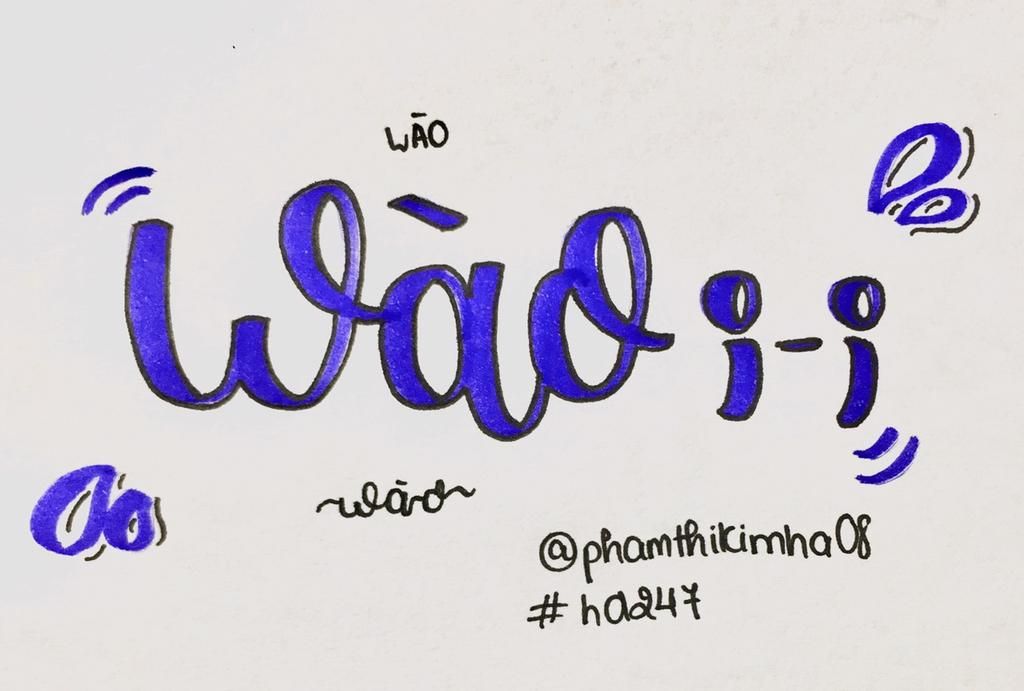 WÀO
Wào ;-;
~wào~
@phamthikimha08
# ha247